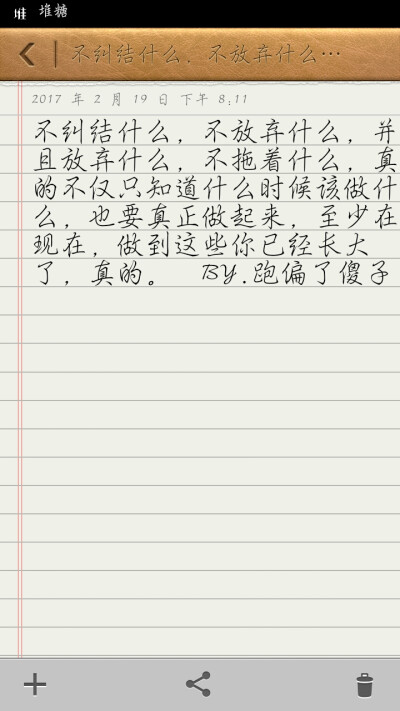 堆糖
不纠结什么，不放弃什么…
2017 年 2 月 19 日 下午 8:11
不纠结什么，不放弃什么，并
且放弃什么，不拖着什么，真
的不仅只知道什么时候该做什
么，也要真正做起来，至少在
现在，做到这些你已经长大
了，真的。 BY.跑偏了傻子